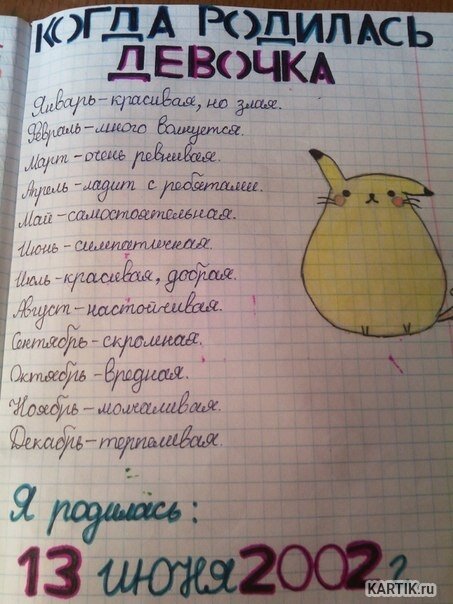 КОГДА РОДИЛАСЬ
ДЕВОЧКА
Январь-красивая, но злая.
Февраль-много волнуется.
Март-очень ревнивая.
Апрель-ладит с ребятами.
Май-самостоятельная.
Июнь-симпатичная.
Июль-красивая, добрая.
Август-настойчивая.
Сентябрь-скромная.
Октябрь-вредная.
Ноябрь-молчаливая.
Декабрь-терпеливая.
Я родилась:
13 июня 2002 г
KARTIK.ru